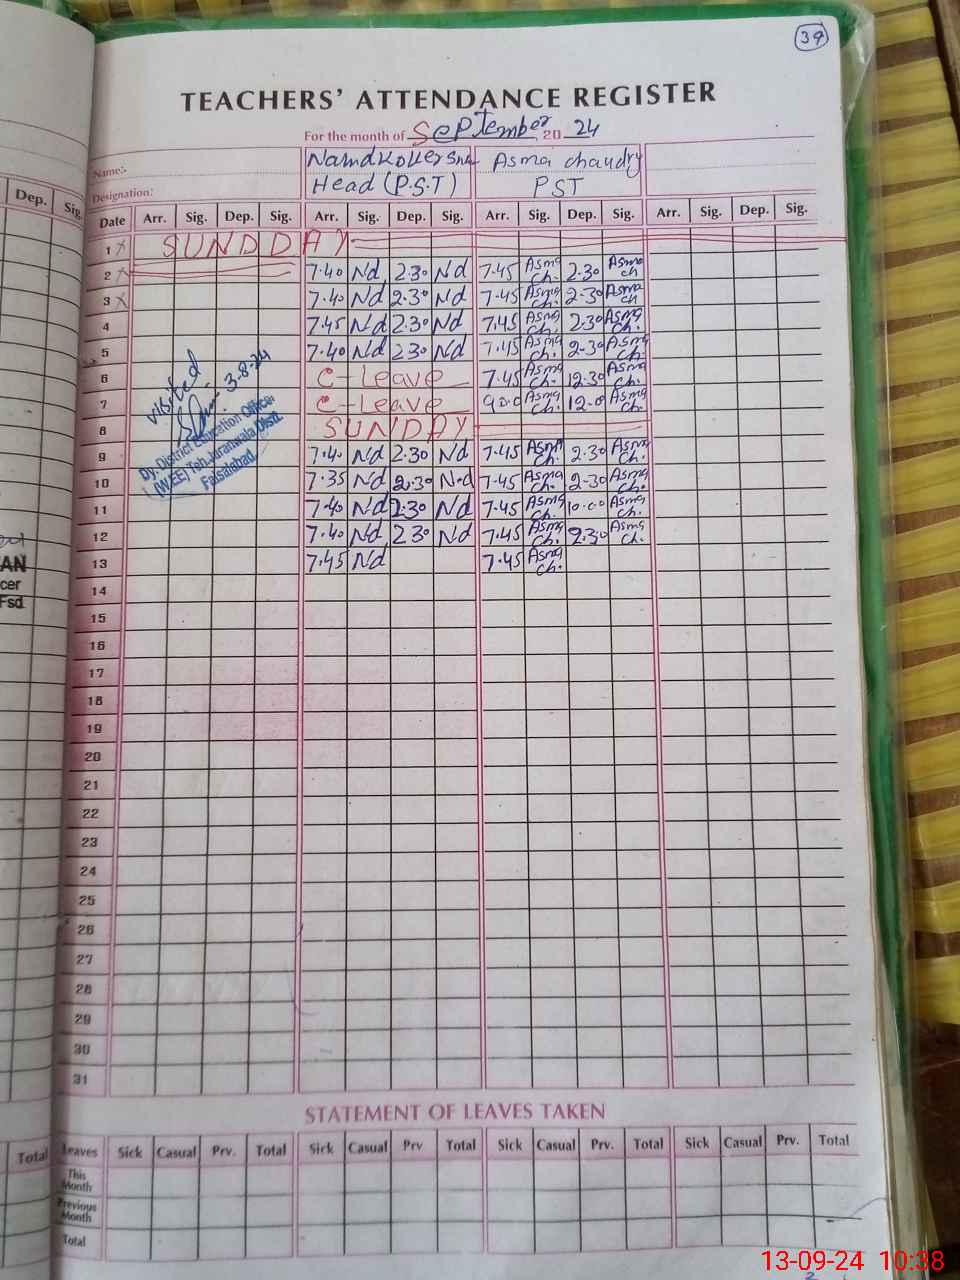 39
TEACHERS' ATTENDANCE REGISTER
For the month of September 20 24
Name:- Asma chaudry
Designation: Head (P.S.T) PST
Dep. Sig.
Date Arr. Sig. Dep. Sig. Arr. Sig. Dep. Sig. Arr. Sig. Dep. Sig. Arr. Sig. Dep. Sig.
1 x SUNDDAY
2 x 7.40 Nd 2.30 Nd 7.45 Asma ch. 2.30 Asma ch
3 x 7.40 Nd 2.30 Nd 7.45 Asma ch. 2.30 Asma ch
4 7.45 Nd 2.30 Nd 7.45 Asma ch. 2.30 Asma ch.
5 7.40 Nd 230 Nd 7.45 Asma ch. 2-30 Asma ch.
6 C-Leave 7.45 Asma ch. 12.30 Asma ch.
7 C-Leave Asma ch. Asma ch.
8 SUNDAY
9 7.40 Nd 2.30 Nd 7.45 Asma ch. 2.30 Asma ch.
10 7.35 Nd 2.30 N.d 7.45 Asma ch. 2-30 Asma ch.
11 7.40 Nd 2.30 Nd 7.45 Asma ch. 10.00 Asma ch.
12 7.40 Nd 230 Nd 7.45 Asma ch. 2.30 Asma ch.
13 7.45 Nd 7.45 Asma ch.
visited
3-8-24
Dy. District Education Officer
(W.EE) Teh. Jaranwala Distt.
Faisalabad
AN
cer
Fsd.
14
15
16
17
18
19
20
21
22
23
24
25
26
27
28
29
30
31
STATEMENT OF LEAVES TAKEN
Total
Leaves Sick Casual Prv. Total Sick Casual Prv Total Sick Casual Prv. Total Sick Casual Prv. Total
This Month
Previous Month
Total
13-09-24 10:38